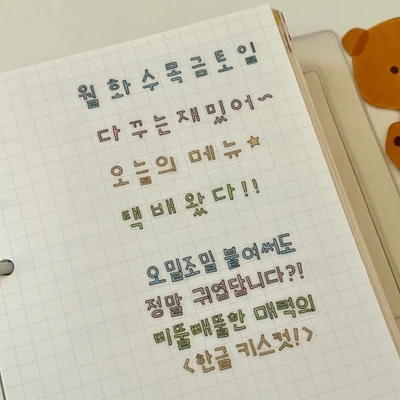 월화수목금토일
다꾸는재밌어~
오늘의 메뉴★
택배왔다!!
오밀조밀 붙여써도
정말 귀엽답니다?!
삐뚤빼뚤한 매력의
<한글 키스컷!>